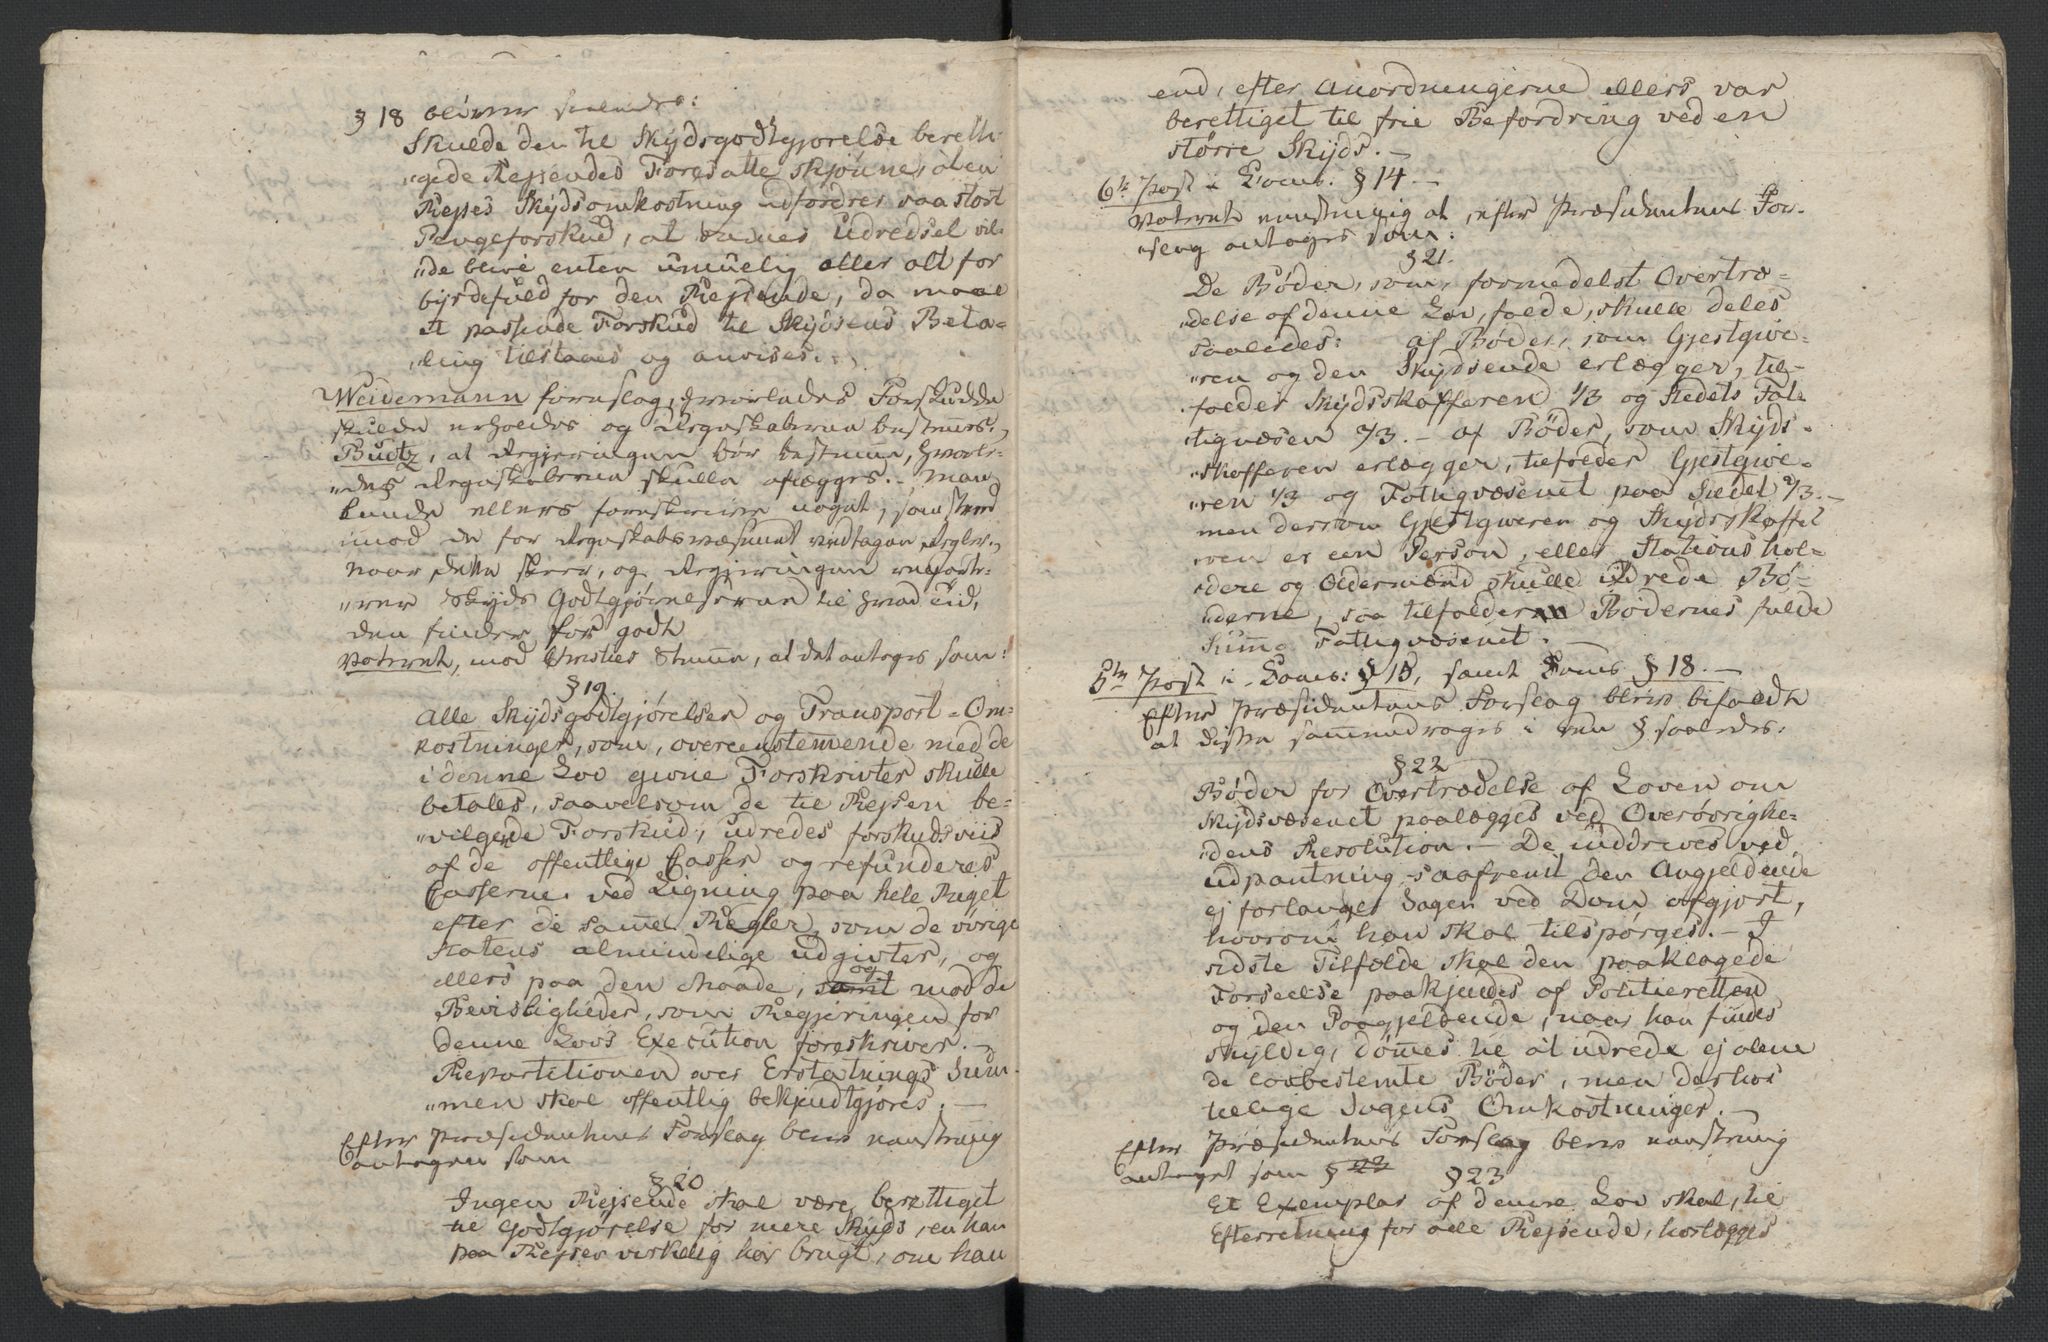 § 18 bliver saaledes:
Skulde den til Skydsgodtgjørelse beretti-
"gede Rejsendes Foresatte skjønne, at en
Rejses Skydsomkostning udfordrer saa stort
Pengeforskud, at dennes Udredsel vil-
"de blive enten umuelig eller alt for
byrdefuld for den Rejsende, da maae
et passende Forskud til Skydsens Beta-
"ling tilstaaes og anvises.
Weidemann foreslog, hvorledes Forskudde
skulde erholdes og Regnskaberne bestemes.
Budtz, at Regjeringen bør bestemme, hvorle-
"des Regnskaberne skulle aflægges. - Man
kunde ellers foreskrive noget, som stred
imod de for Regnskabsvæsenet vedtagne Regler,
naar dette skeer, og Regjeringen
"rer Skyds Godtgjørelserne til hvad Tid,
den finder for godt
Voteret, mod Christies Stemme, at det antages som:
§ 19.
Alle Skydsgodtgjørelser og Transport-Om-
kostninger, som, overeenstemmende med de
i denne Lov givne Forskrivter skulle
betales, saavelsom de til Rejsen be-
"vilgede Forskud, udredes forskudsviis
af de offentlige Casser og refunderes
Casserne ved Ligning paa hele Riget
efter de samme Regler, som de øvrige
Statens almindelige Udgivter, og
ellers paa den Maade, samt og mod de
Bevisligheder, som Regjeringen for
denne Lovs Execution foreskriver. -
Repartitionen over Erstatnings Sum-
"men skal offentlig bekjendtgjøres. -
Efter Præsidentens Forslag blev eenstemig
antagen som
§ 20
Ingen Rejsende skal være berettiget
til Godtgjørelse for mere Skyds, en han
paa Rejser virkelig har brugt, om han
end, efter Anordningerne ellers var
berettiget til frie Befordring ved en
større Skyds. -
6te Post i Lovens § 14. -
Voteret eenstemig at, efter Præsidentens For-
"slag antages som:
§ 21.
De Bøder, som, formedelst Overtræ-
"delse af denne Lov, falde, skulle deles
saaledes: af Bøder, som Gjestgive-
"ren og den Skydsende erlægger, til-
falder Skydsskafferen 1/3 og Stedets Fat-
tigvæsen 2/3. - af Bøder, som Skyds-
"skafferen erlægger, tilfalder Gjestgive-
"ren 1/3 og Fattigvæsenet paa Stedet 2/3. -
men dersom Gjestgiveren og Skydsskaffe-
ren er een Person, eller Stationshol-
"dere og Oldermænd skulle udrede Bø-
"derne, saa tilfalder Bødernes fulde
Summa Fattigvæsenet. -
5te Post i Lovs: § 15, samt Lovs § 18. -
Efter Præsidentens Forslag blev bifaldt
at disse sammendrages i een § saaledes.
§ 22
Bøder for Overtrædelse af Loven om
Skydsvæsenet paalægges ved Overøvrighe-
"dens Resolution. - De inddrives ved
udpantning, saafremt den Angjeldende
ej forlanger Sagen ved Dom afgjort,
hvorom han skal tilspørges. - I
sidste Tilfælde skal den paaklagede
Forseelse paakjendes af Politieretten
og den Paagjeldende, naar han findes
skyldig, dømmes til at udrede ej alene
de lovbestemte Bøder, men derhos
tillige Sagens Omkostninger. -
Efter Præsidentens Forslag blev eenstemig
antaget som § 22 § 23
Et Exemplar af denne Lov skal, til
Efterretning for alle Rejsende, henlægges